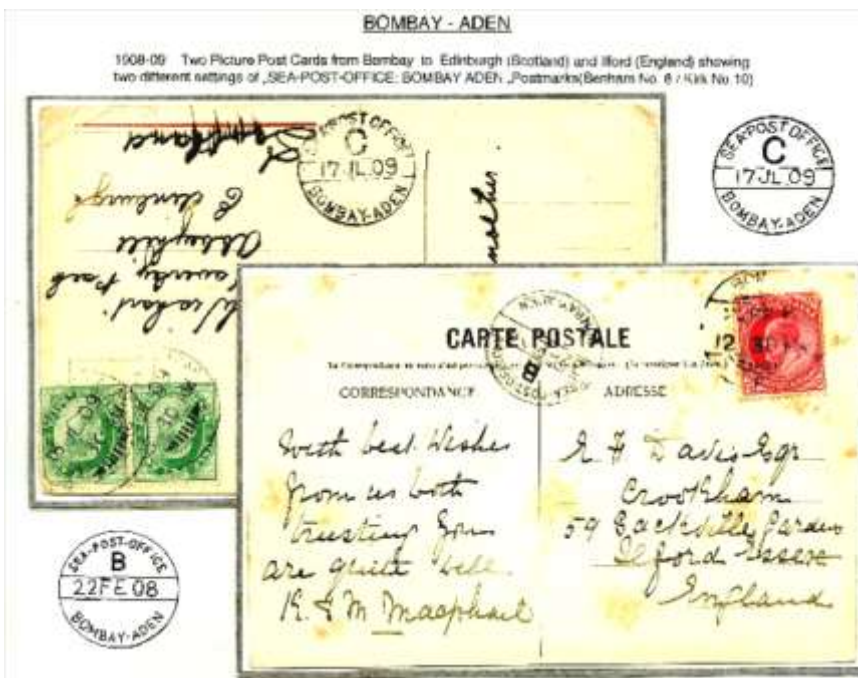 BOMBAY - ADEN
1908-09 Two Picture Post Cards from Bombay to Edinburgh (Scotland) and Ilford (England) showing
two different settings of „SEA-POST-OFFICE: BOMBAY ADEN „Postmarks(Benham No. 6 / Kirk No 10)
SEA-POST OFFICE
C
17 JL 09
BOMBAY-ADEN
SEA-POST OFFICE
C
17 JL 09
BOMBAY-ADEN
Scotland
Edinburgh
Abbeyhill
mother
CARTE POSTALE
B
12
CORRESPONDANCE
ADRESSE
With best Wishes
from us both
trusting you
are quite well
K. & M. Macphail
E H Davis Esqr
Crookham
59 Sackville Gardens
Ilford Essex
England
SEA-POST-OFFICE
B
22 FE 08
BOMBAY-ADEN